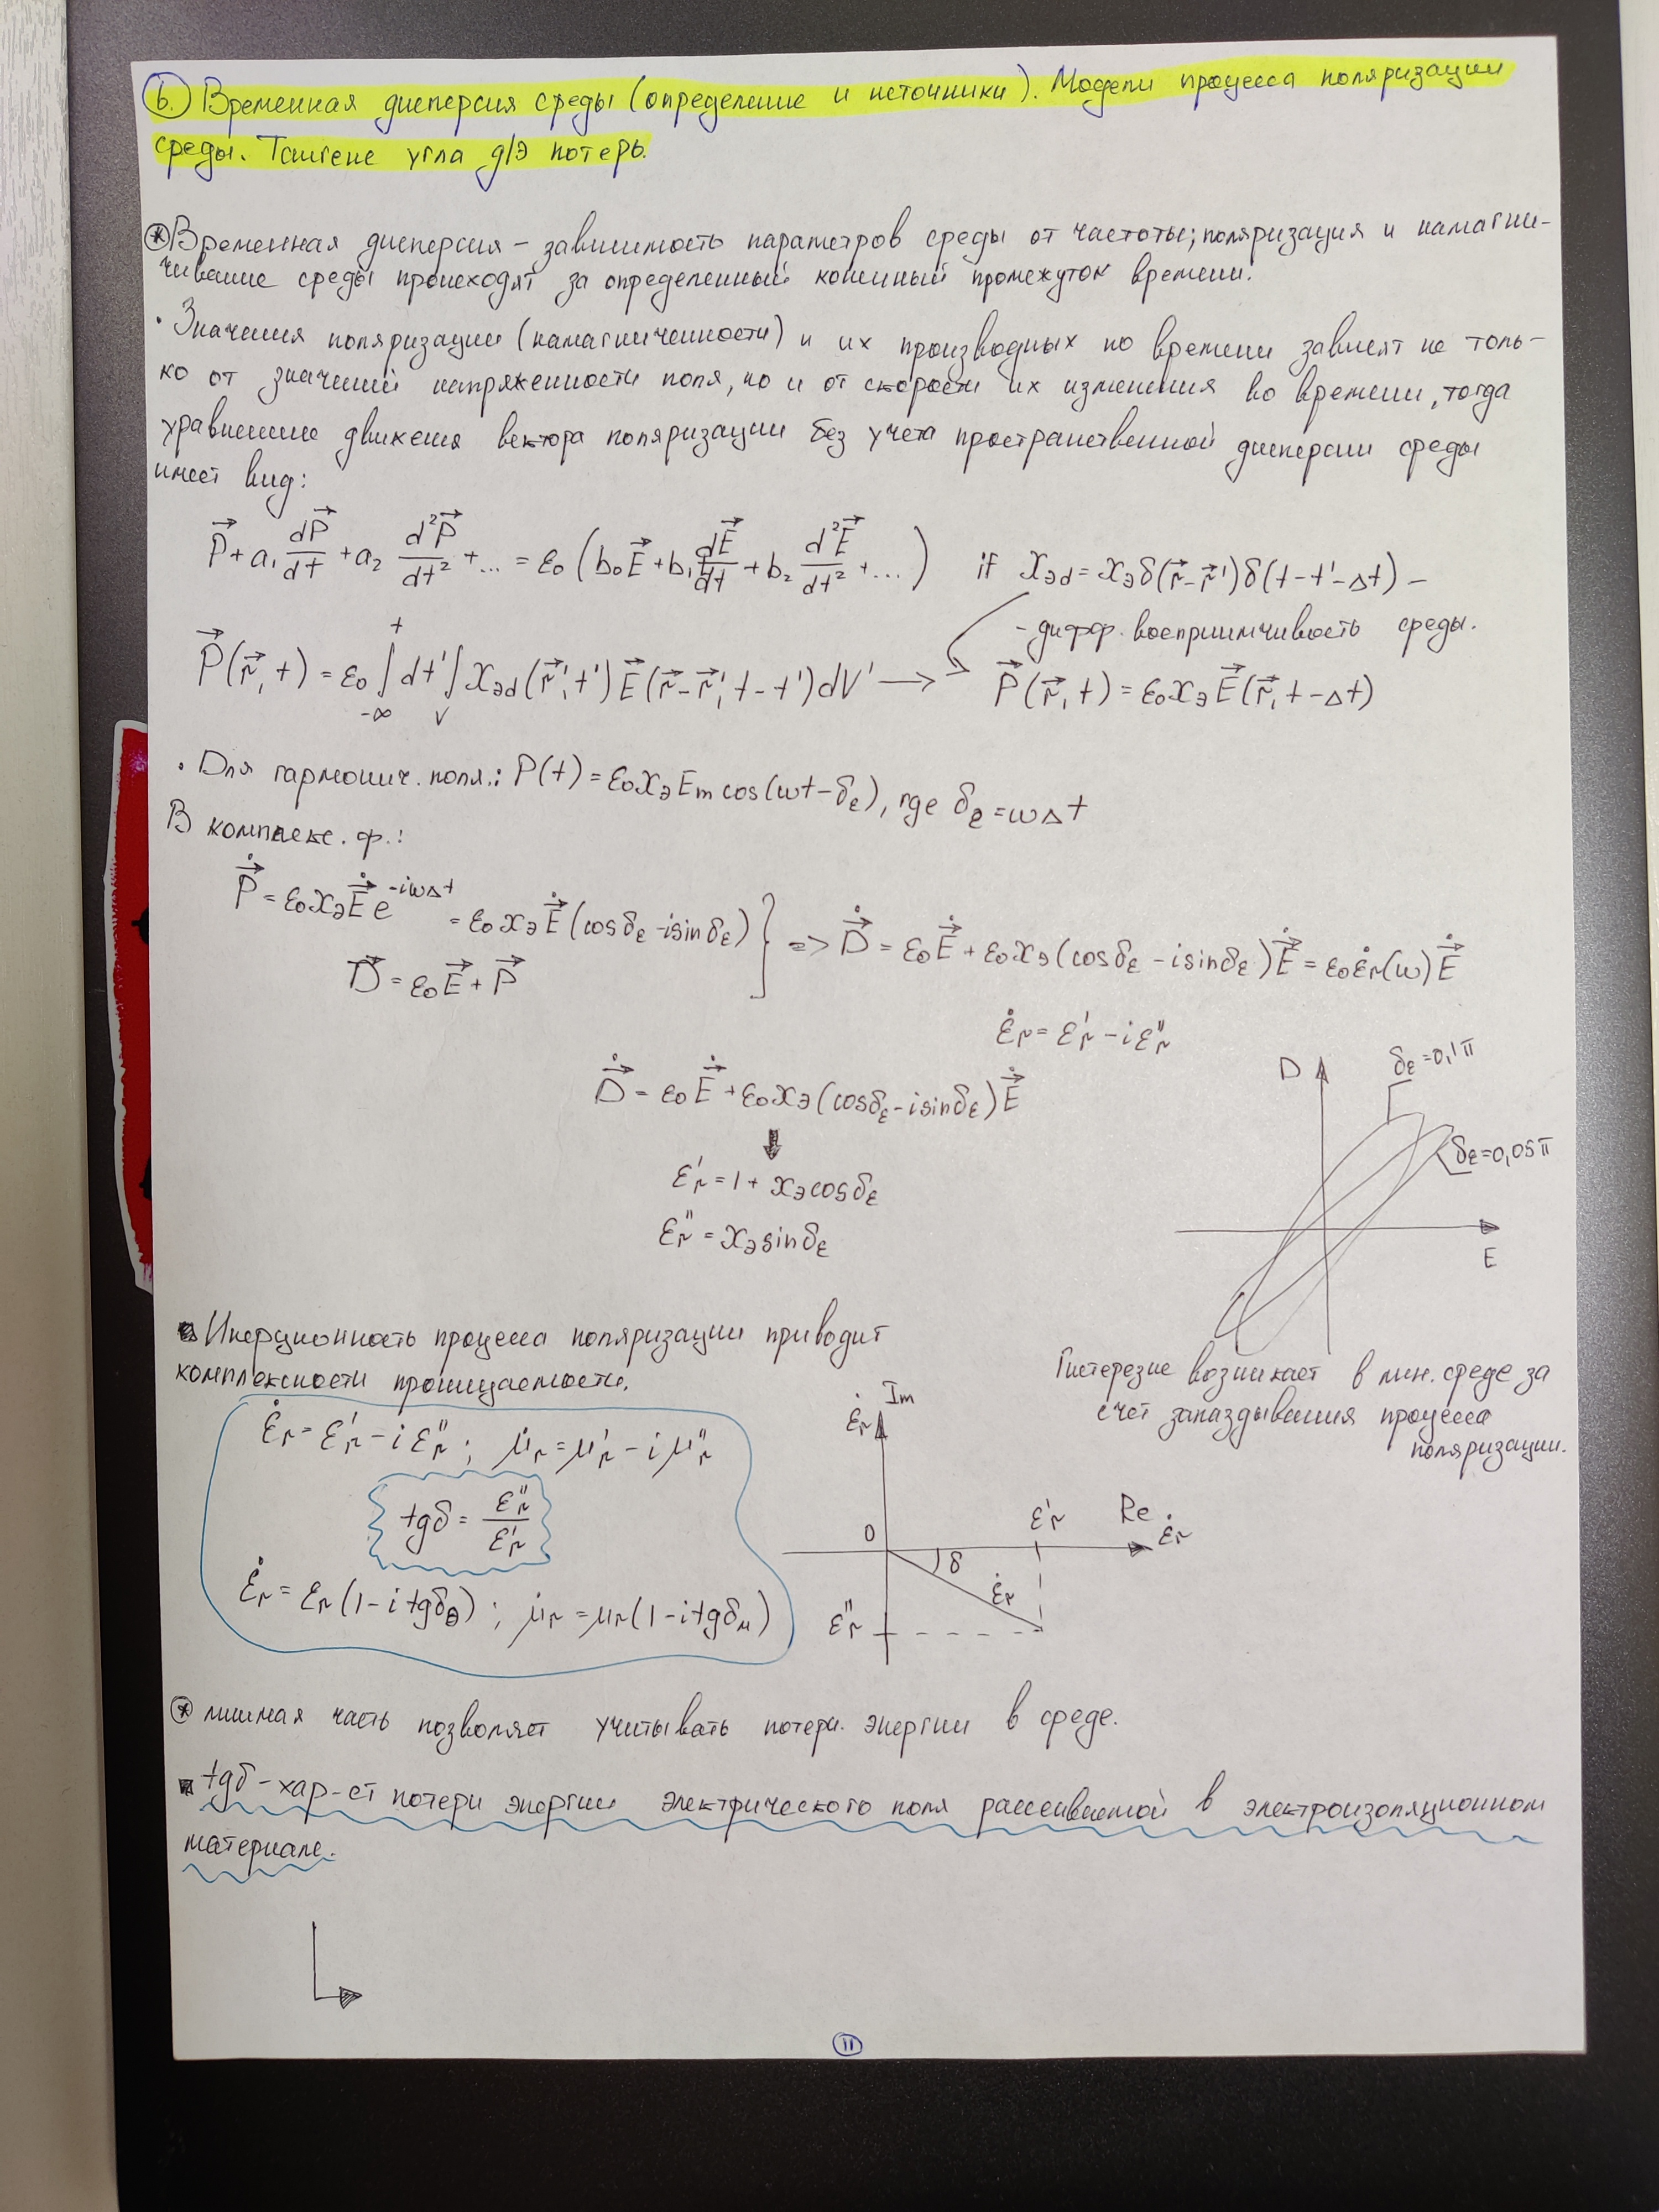 6. Временная дисперсия среды (определение и источники). Модели процесса поляризации
среды. Тангенс угла д/э потерь.
Временная дисперсия – зависимость параметров среды от частоты; поляризация и намагни-
чивание среды происходят за определенный конечный промежуток времени.
· Значения поляризации (намагниченности) и их производных по времени зависят не толь-
ко от значений напряженности поля, но и от скорости их изменения во времени, тогда
уравнение движения вектора поляризации без учета пространственной дисперсии среды
имеет вид:
P⃗ + a₁ dP⃗/dt + a₂ d²P⃗/dt² + ... = ε₀ (b₀E⃗ + b₁ dE⃗/dt + b₂ d²E⃗/dt² + ...) if χэd = χэδ(r⃗ - r⃗')δ(t - t' - Δt) –
- дифф. восприимчивость среды.
P⃗(r⃗, t) = ε₀ ∫₋∞ᵗ dt' ∫ᵥ χэd(r⃗', t') E⃗(r⃗ - r⃗', t - t') dV' → P⃗(r⃗, t) = ε₀χэE⃗(r⃗, t - Δt)
· Для гармонич. поля.: P(t) = ε₀χэEm cos(ωt - δε), где δε = ωΔt
В комплекс. ф.:
Ṗ⃗ = ε₀χэĖ⃗ e^(-iωΔt) = ε₀χэĖ⃗ (cosδε - isinδε)
D⃗ = ε₀E⃗ + P⃗
} => Ḋ⃗ = ε₀Ė⃗ + ε₀χэ(cosδε - isinδε)Ė⃗ = ε₀ε̇r(ω)Ė⃗
ε̇r = ε'r - iε''r
Ḋ⃗ = ε₀Ė⃗ + ε₀χэ(cosδε - isinδε)Ė⃗
⇓
ε'r = 1 + χэcosδε
ε''r = χэsinδε
D
δε = 0,1π
δε = 0,05π
E
Гистерезис возникает в лин. среде за
счет запаздывания процесса
поляризации.
Инерционность процесса поляризации приводит
комплексности проницаемости.
ε̇r = ε'r - iε''r ; μ̇r = μ'r - iμ''r
tgδ = ε''r / ε'r
ε̇r = εr(1 - i tgδэ) ; μ̇r = μr(1 - i tgδм)
Im
ε̇r
0
ε'r
Re ε̇r
δ
ε̇r
ε''r
мнимая часть позволяет учитывать потери. энергии в среде.
tgδ – хар-ет потери энергии электрического поля рассеиваемой в электроизоляционном
материале.
11